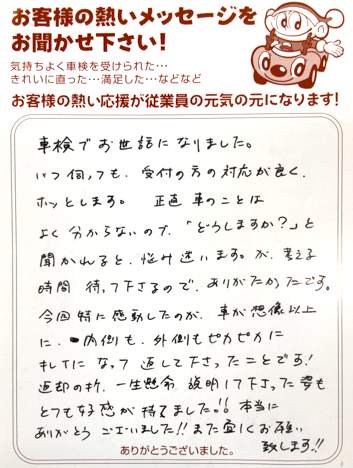 お客様の熱いメッセージを
お聞かせ下さい!
気持ちよく車検を受けられた…
きれいに直った…満足した…などなど
お客様の熱い応援が従業員の元気の元になります!
車検でお世話になりました。
いつ伺っても、受付の方の対応が良く、
ホッとします。 正直 車のことは
よく分からないので、「どうしますか?」と
聞かれると、悩み迷います。が、考える
時間 待って下さるので、ありがたかったです。
今回 特に感動したのが、車が想像以上
に、内側も、外側もピカピカに
キレイに なって 返して下さったことです!
返却の折、一生懸命 説明して下さった姿も
とても好感が持てました!! 本当に
ありがとう ございました!! また宜しくお願い
致します!!
ありがとうございました。